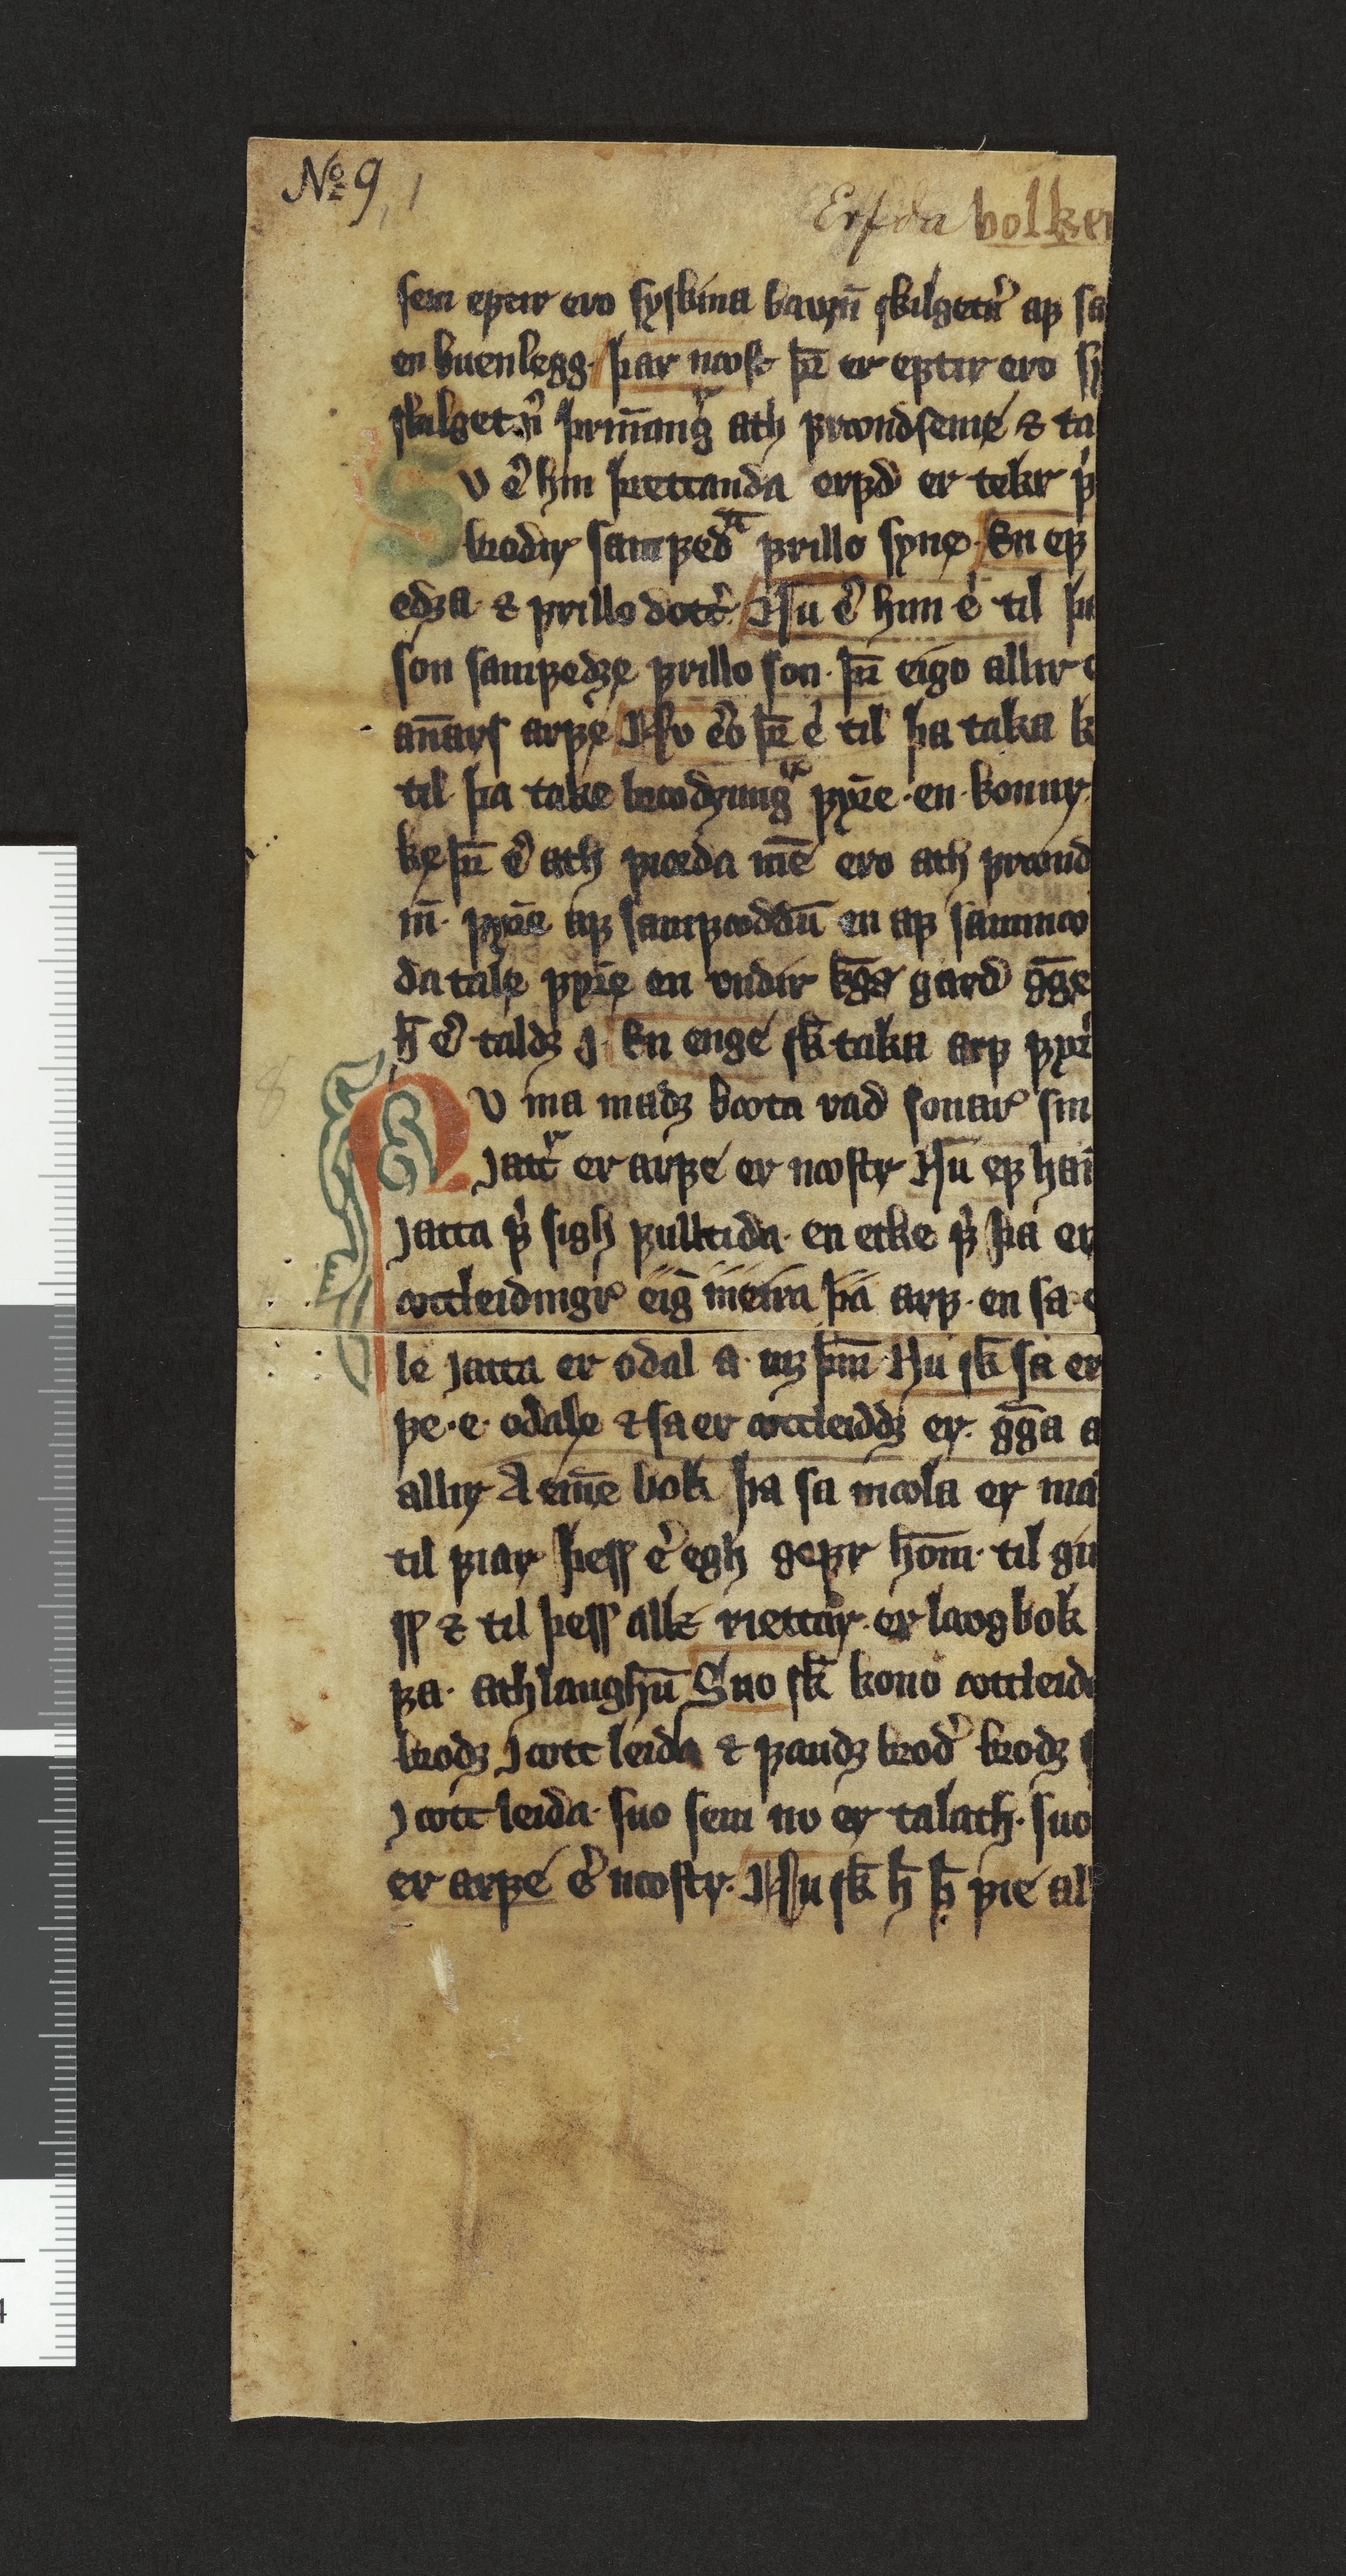 No 9, 1
Erfda bolken
sem eptir ero syskina barnn̄ skilgetn̄ af sa
en kuenlegg. þar næst þr̄ er eptir ero sy
skilgetn̄ þrm̄ning ath frændseme ⁊ ta
Sv e͛ hin þrettanda erfd er tekr f͛
brodir samfedᷓ frillo syne. En ef
edꝛa ⁊ frillo dott͛. Nu e͛ hun e͛ til þa
son samfedꝛe frillo son. þr̄ eigo allir
an̄ars arfe. Nv e͛o þr̄ e͛ til þa taka
til þa take brædrungᷓ fyꝛe en konur
ke þr̄ e͛ ath fiorda mē ero ath frænd
m̄. fyꝛe af samfæddū en af sammæ
da tale fyꝛe en vndir kḡs gard gḡe
h̄ e͛ taldꝛ J. En enge sk̄ taka arf fyꝛ
Nv ma madꝛ bœta vad sonar sin
Jatt͛ er arfe er næstr. Nu ef han̄
Jatta f͛ sigh fulltida. en etke f͛ þa er
œttleidingr eig meira þa arf. en sa
le Jatta er odal a. vꝛ þm̄ Nu sk̄ sa er
fe. e. odale ⁊ sa er œttleiddꝛ er. gḡa a
allir A eine bok þa sa mæla er ma
til fiar þess e͛ egh gefr hom̄. til gu
ss ⁊ til þess allt riettar. er laogbok
fa. athlaughū Suo sk̄ kono œttleid
brodꝛ J œtt leida ⁊ faudꝛ brod͛ brodꝛ
J œtt leida. suo sem nv er talath. suo
er arfe e͛ næstr. Nu sk̄ h̄ h̄ fie al